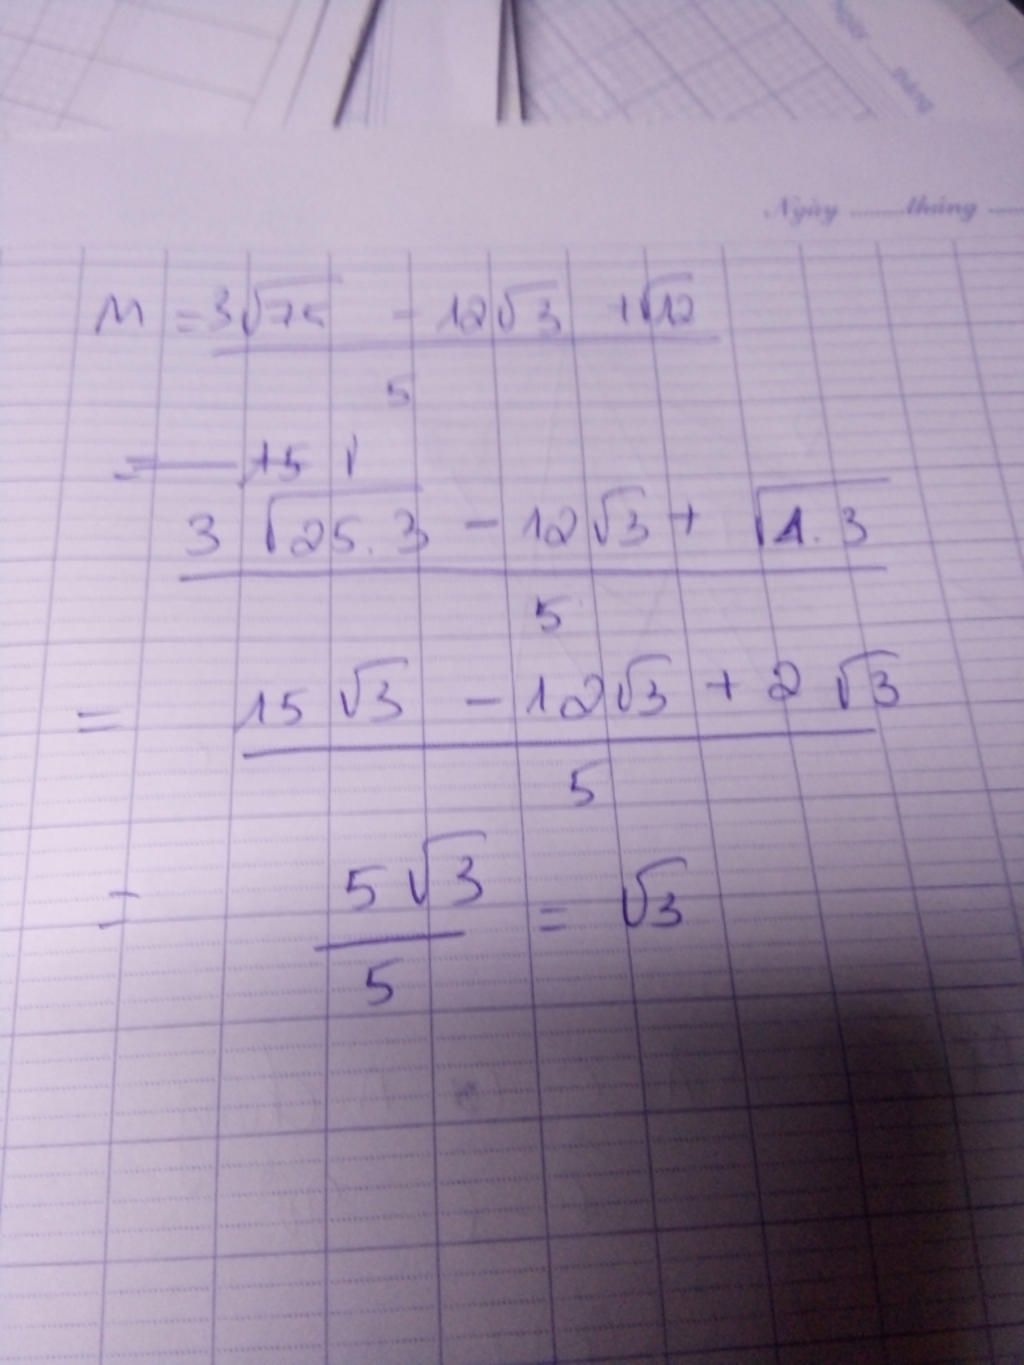 Ngày ........ tháng .....
M = 3√75 - 12√3 + √12
5
= +5 √
3 √25.3 - 12√3 + √4.3
5
= 15 √3 - 12√3 + 2 √3
5
= 5√3 = √3
5